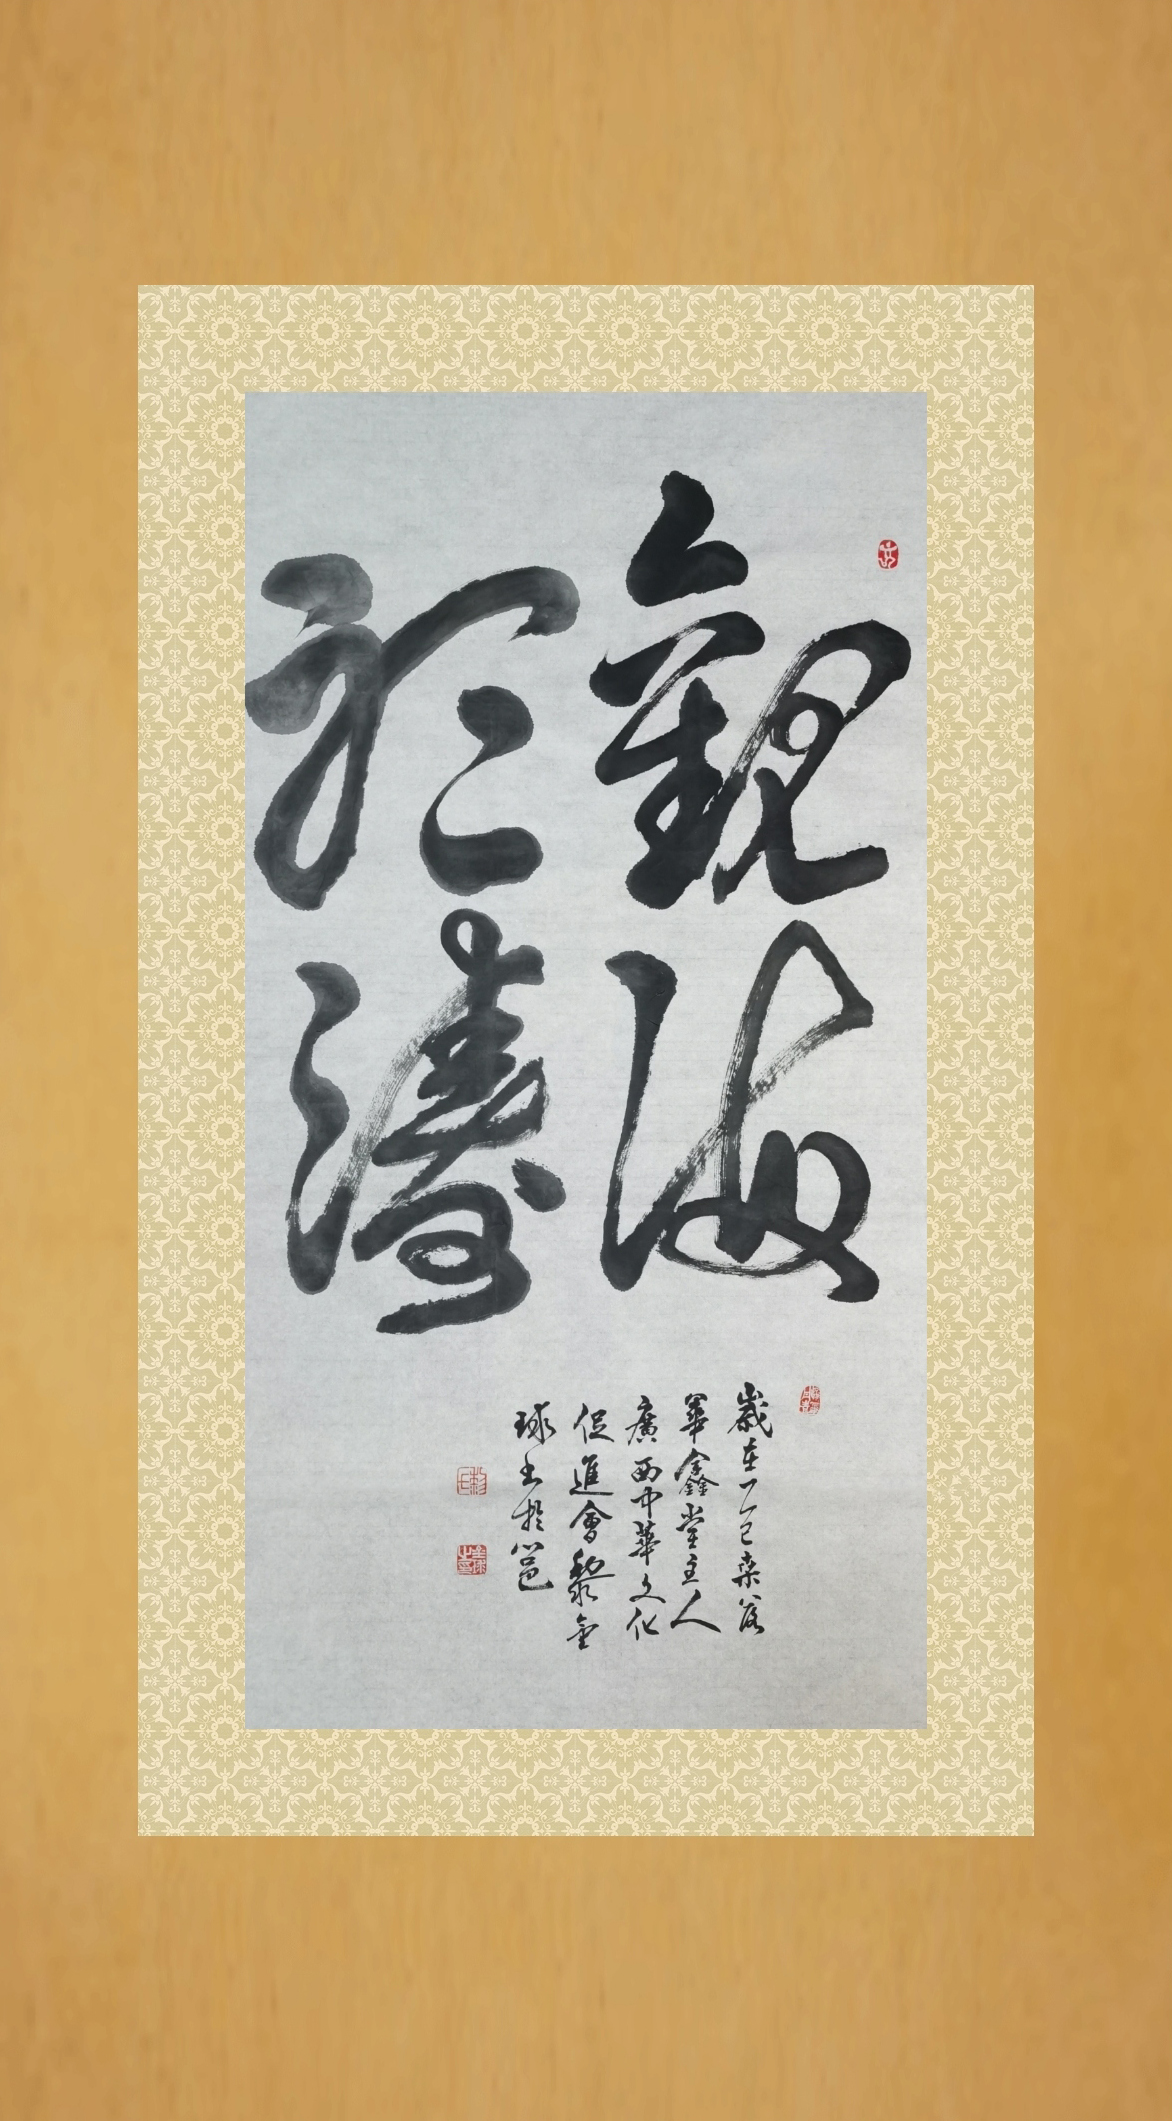 觀海
聽濤
歲在乙巳
鑫堂主人
廣西中華文化
促進會黎金
球书於邕